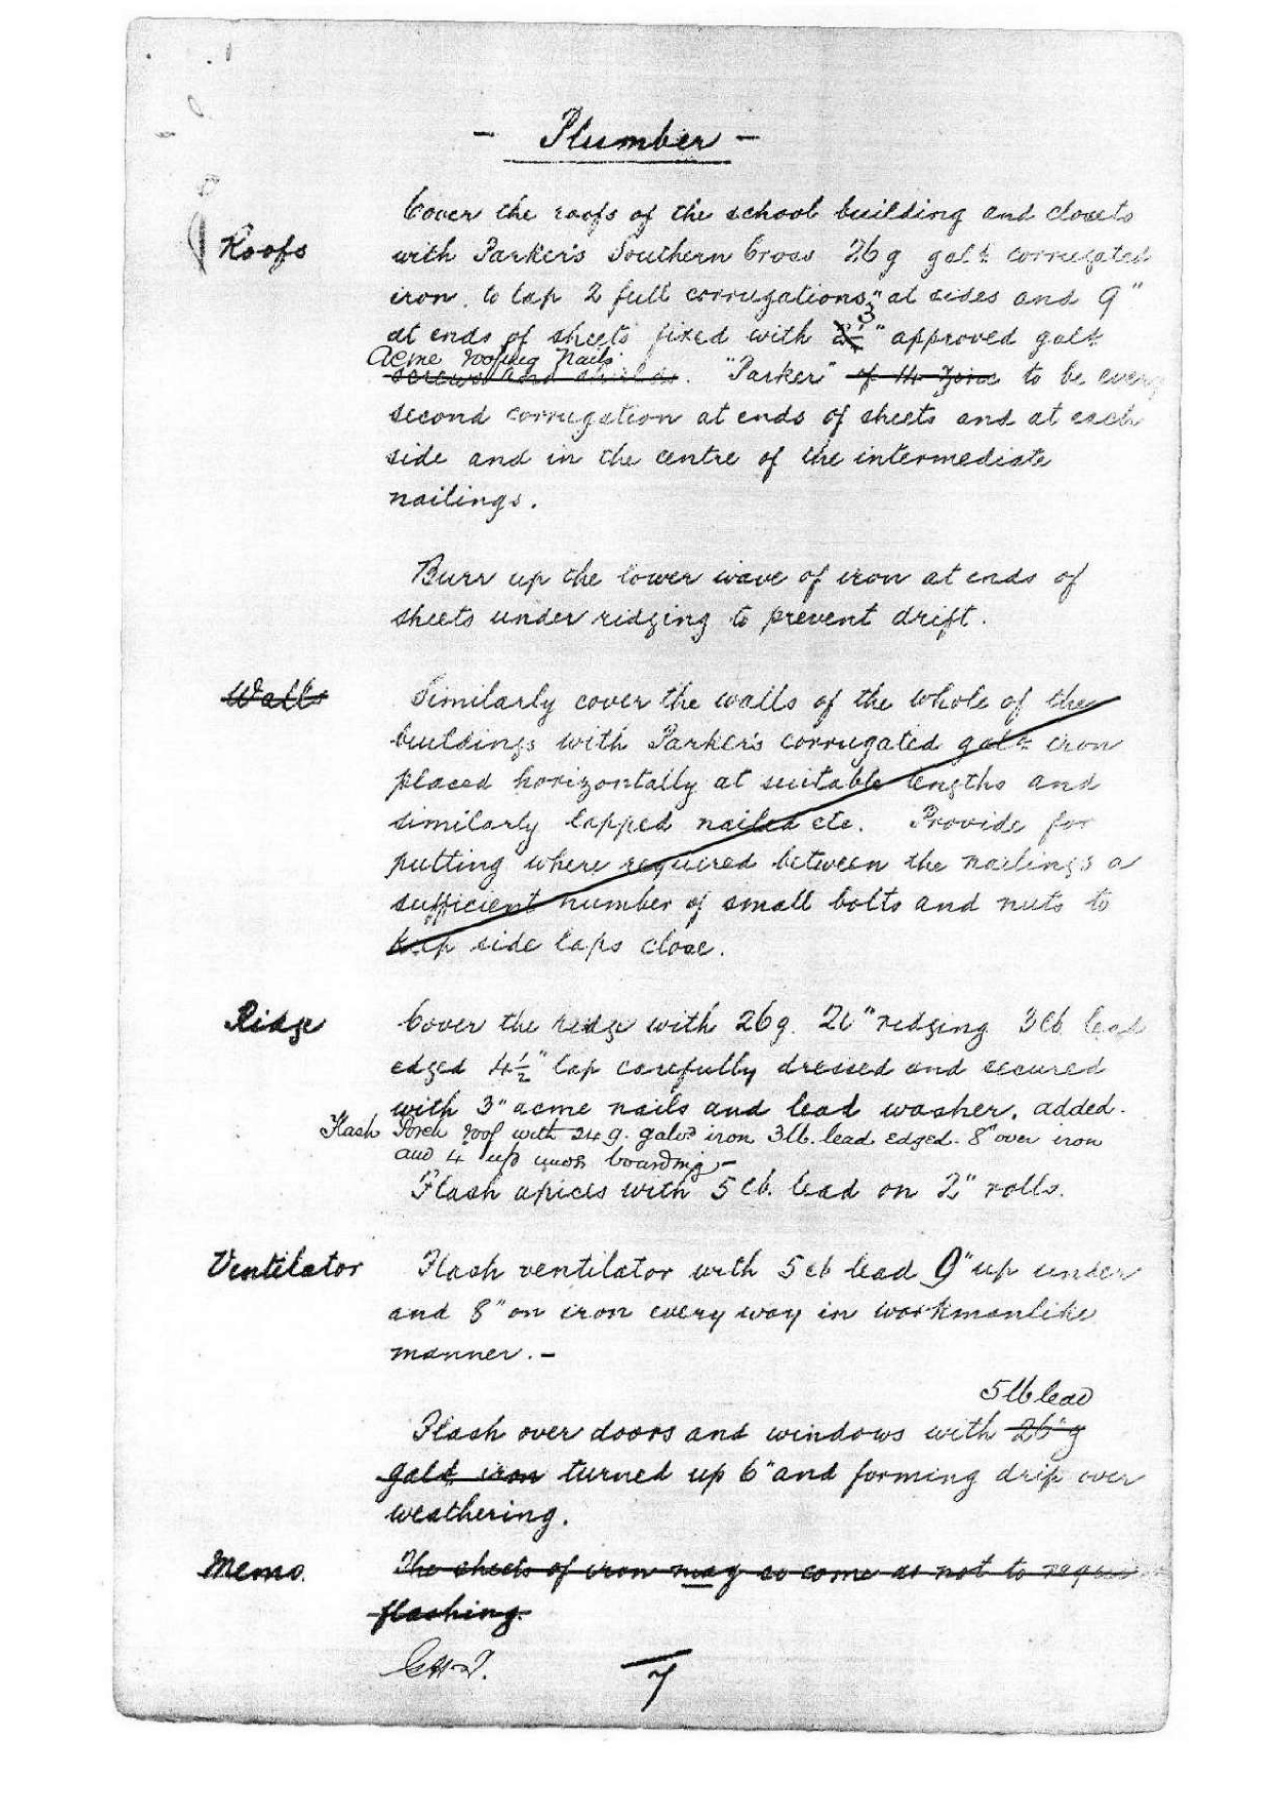 - Plumber -
Cover the roofs of the school building and closets
Roofs with Parker's Southern Cross 26g galv. corrugated
iron to lap 2 full corrugations at sides and 9"
3
at ends of sheets fixed with " approved galv.
Acme roofing Nails
screws and shields. "Parker" to be every
second corrugation at ends of sheets and at each
side and in the centre of the intermediate
nailings.
Burr up the lower wave of iron at ends of
sheets under ridging to prevent drift.
Walls Similarly cover the walls of the whole of the
buildings with Parker's corrugated galv. iron
placed horizontally at suitable lengths and
similarly lapped nailed etc. Provide for
putting where required between the nailings a
sufficient number of small bolts and nuts to
keep side laps close.
Ridge Cover the ridge with 26g. ridging 3lb lead
edged 4½" lap carefully dressed and secured
with 3" acme nails and lead washer. added.
Flash Porch roof with 24g. galvd iron 3lb. lead edged. 8" over iron
and 4 up under boarding -
Flash apices with 5lb. lead on 2" rolls.
Ventilator Flash ventilator with 5lb lead 9" up under
and 8" on iron every way in workmanlike
manner. -
5lb lead
Flash over doors and windows with 26"g
galvd iron turned up 6" and forming drip over
weathering.
Memo. The sheets of iron may so come as not to require
flashing.
7